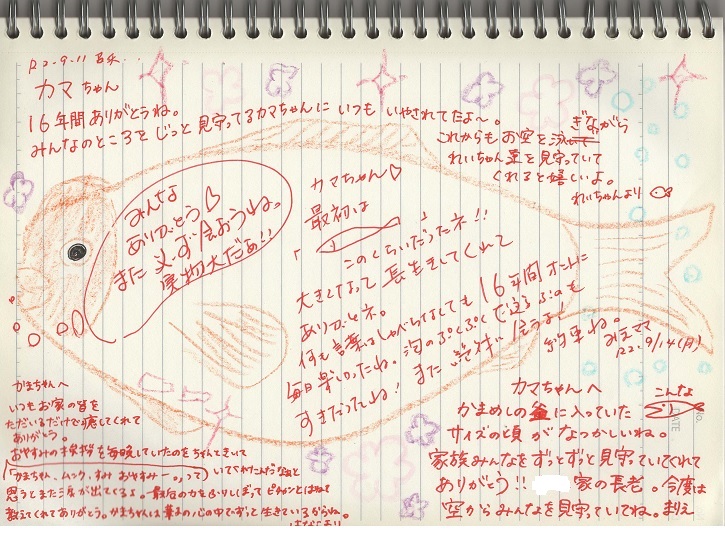 R2.9.11
カマちゃん
16年間ありがとうね。
みんなのところをじっと見守ってるカマちゃんにいつもいやされてたよ〜。
これからもお空を泳ぎながら
れいちゃん達を見守っていて
くれると嬉しいよ。
れいちゃんより
みんな
ありがとう♡
また必ず会おうね。
実物大だぁ!!
カマちゃん♡
最初は
「 」
このくらいだったネ!!
大きくなって長生きしてくれて
ありがとネ。
何も言葉はしゃべらなくても16年間ホントに
毎日楽しかったね。泡のぷくぷくで遊ぶのも
すきだったよね!また絶対会うよ!
約束ね。
ママ
R2.9/14(月)
かまちゃんへ
いつもお家の皆を
ただいるだけで癒してくれて
ありがとう。
おやすみの挨拶を毎晩していたのをちゃんときいて
(「かまちゃん、ムック、すみ おやすみー。」って)いてくれたんだなぁと
思うとまた涙が出てくるよ。最后の力をふりしぼってピチャンとはねて
教えてくれてありがとう。かまちゃんは皆の心の中でずっと生きているからね。
はなこより
カマちゃんへ
かまめしの釜に入っていた こんな
サイズの頃がなつかしいね。
家族みんなをずっとずっと見守っていてくれて
ありがとう!! 家の長老。今度は
空からみんなを見守っていてね。
NO.
DATE